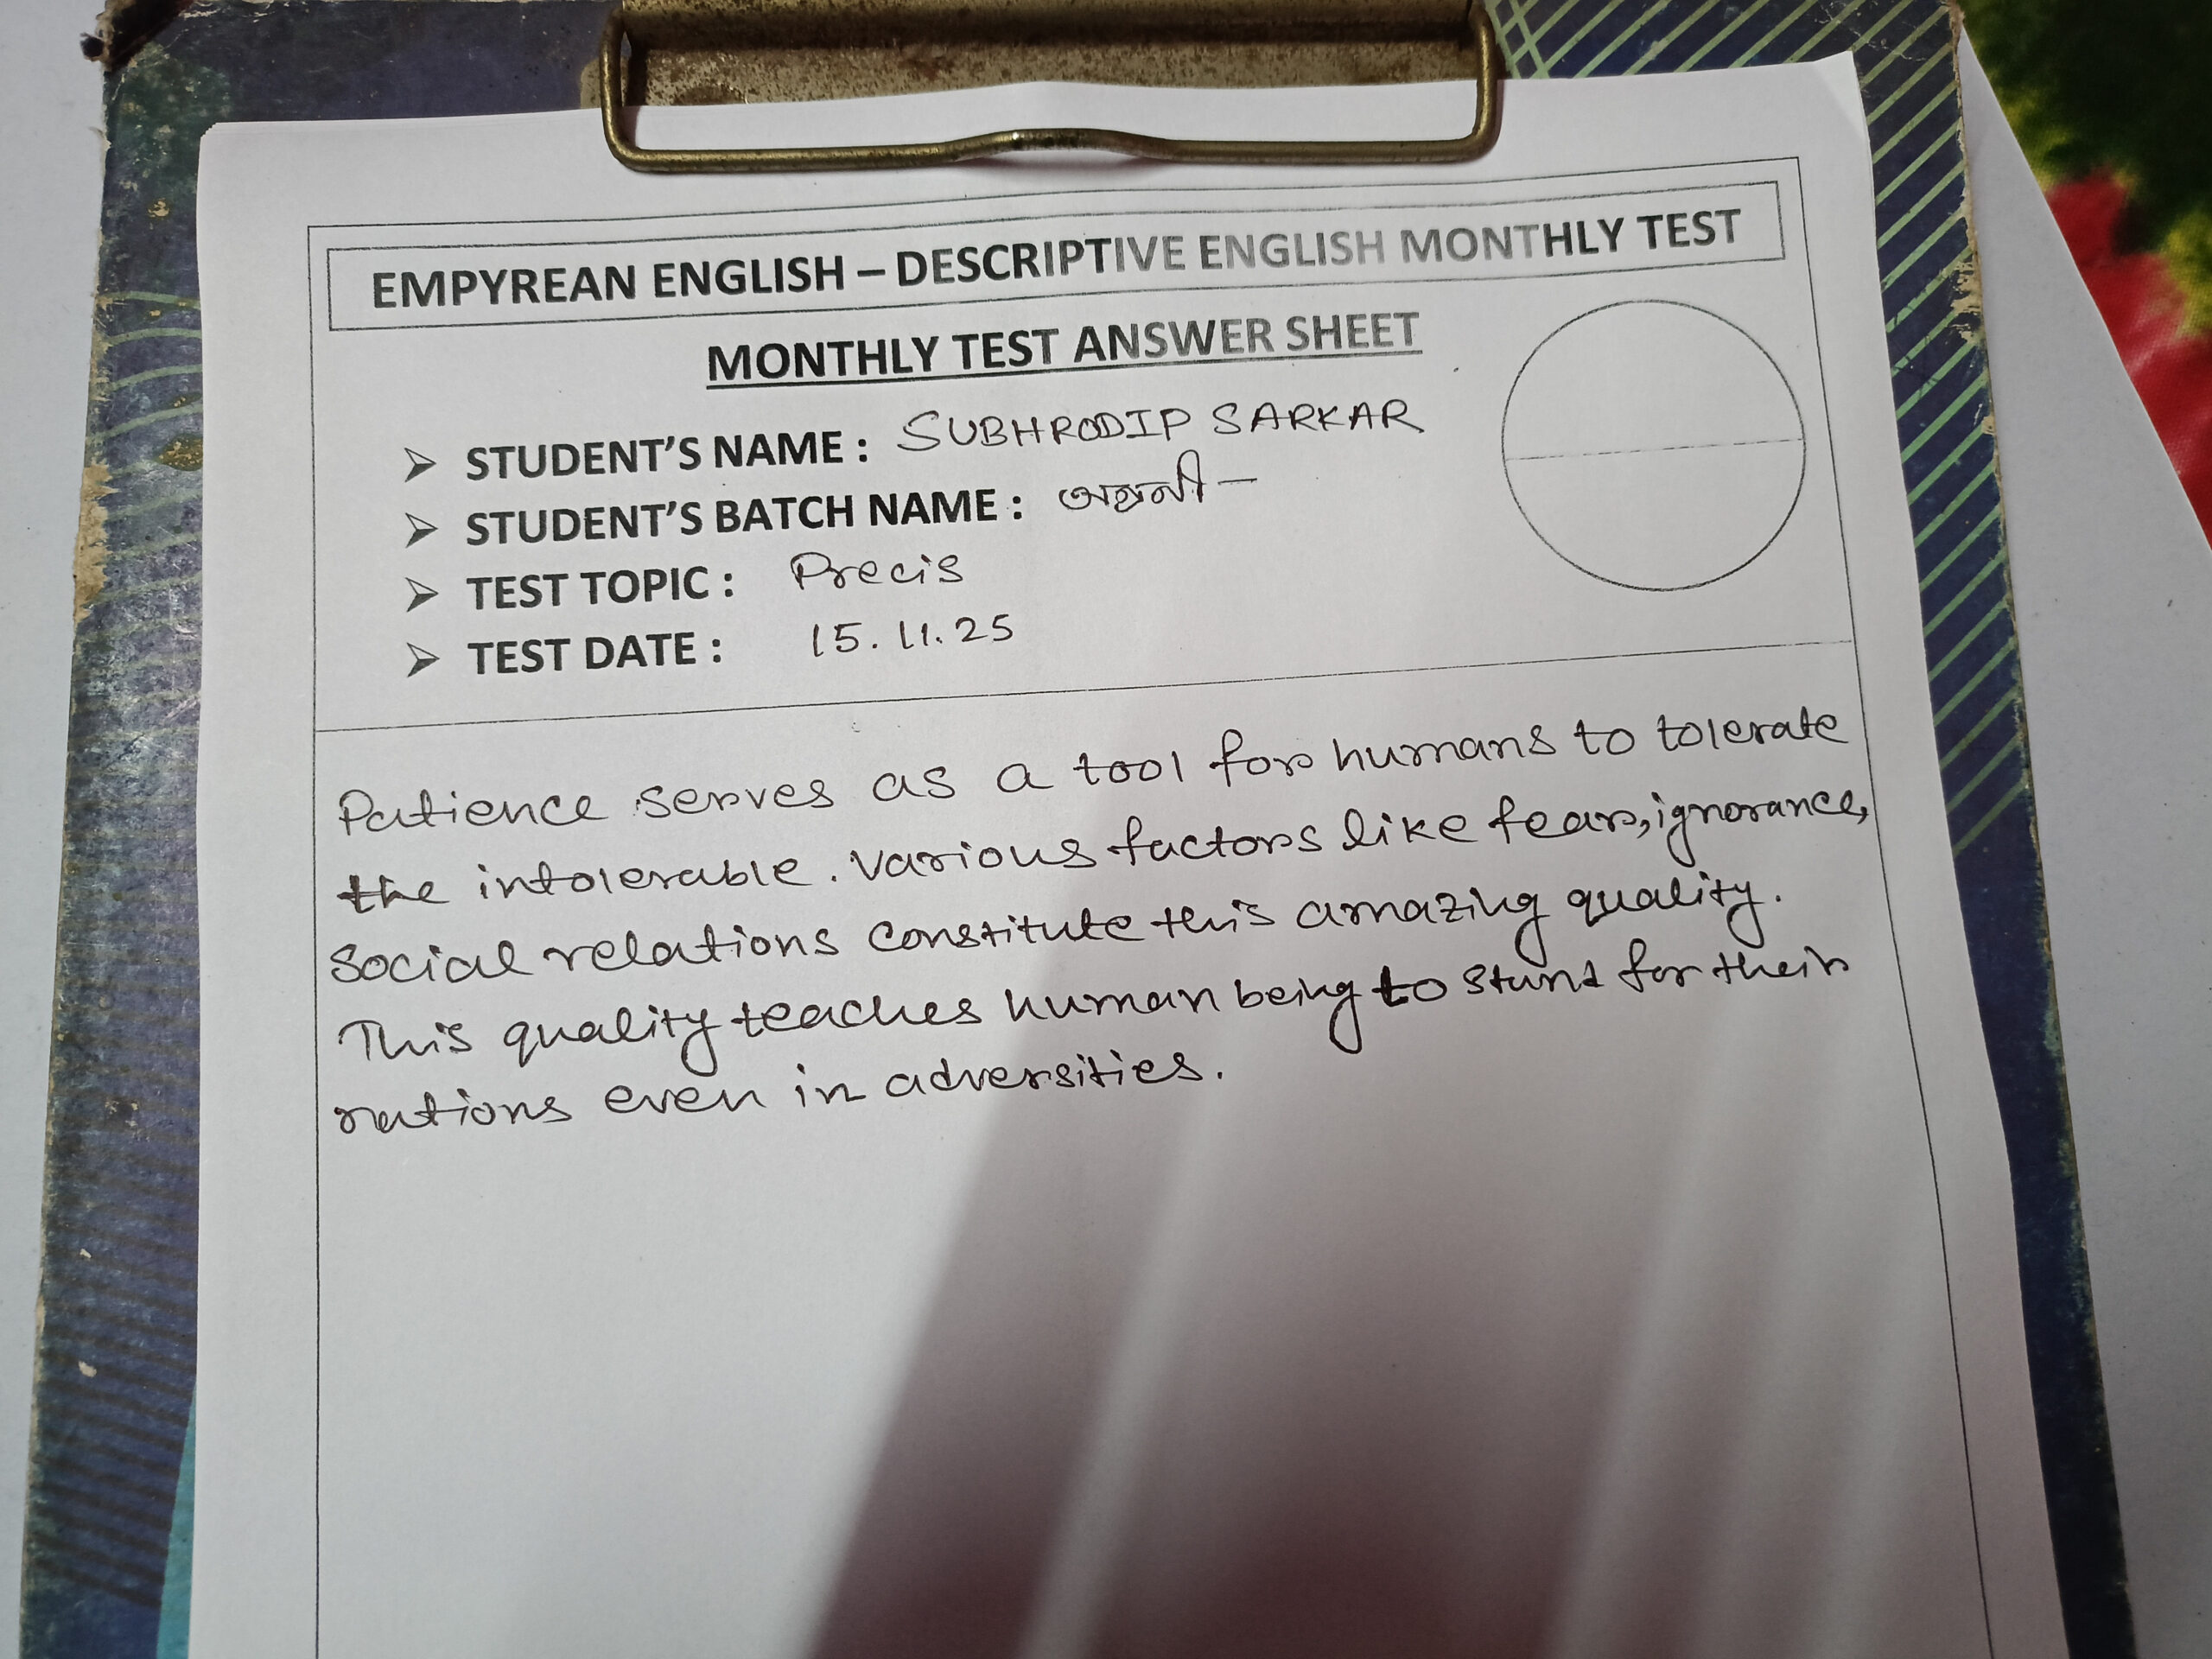 EMPYREAN ENGLISH – DESCRIPTIVE ENGLISH MONTHLY TEST
MONTHLY TEST ANSWER SHEET
➢ STUDENT'S NAME : SUBHRODIP SARKAR
➢ STUDENT'S BATCH NAME : অগ্রনী –
➢ TEST TOPIC : Precis
➢ TEST DATE : 15.11.25
Patience serves as a tool for humans to tolerate
the intolerable. Various factors like fear, ignorance,
social relations constitute this amazing quality.
This quality teaches human being to stand for their
nations even in adversities.